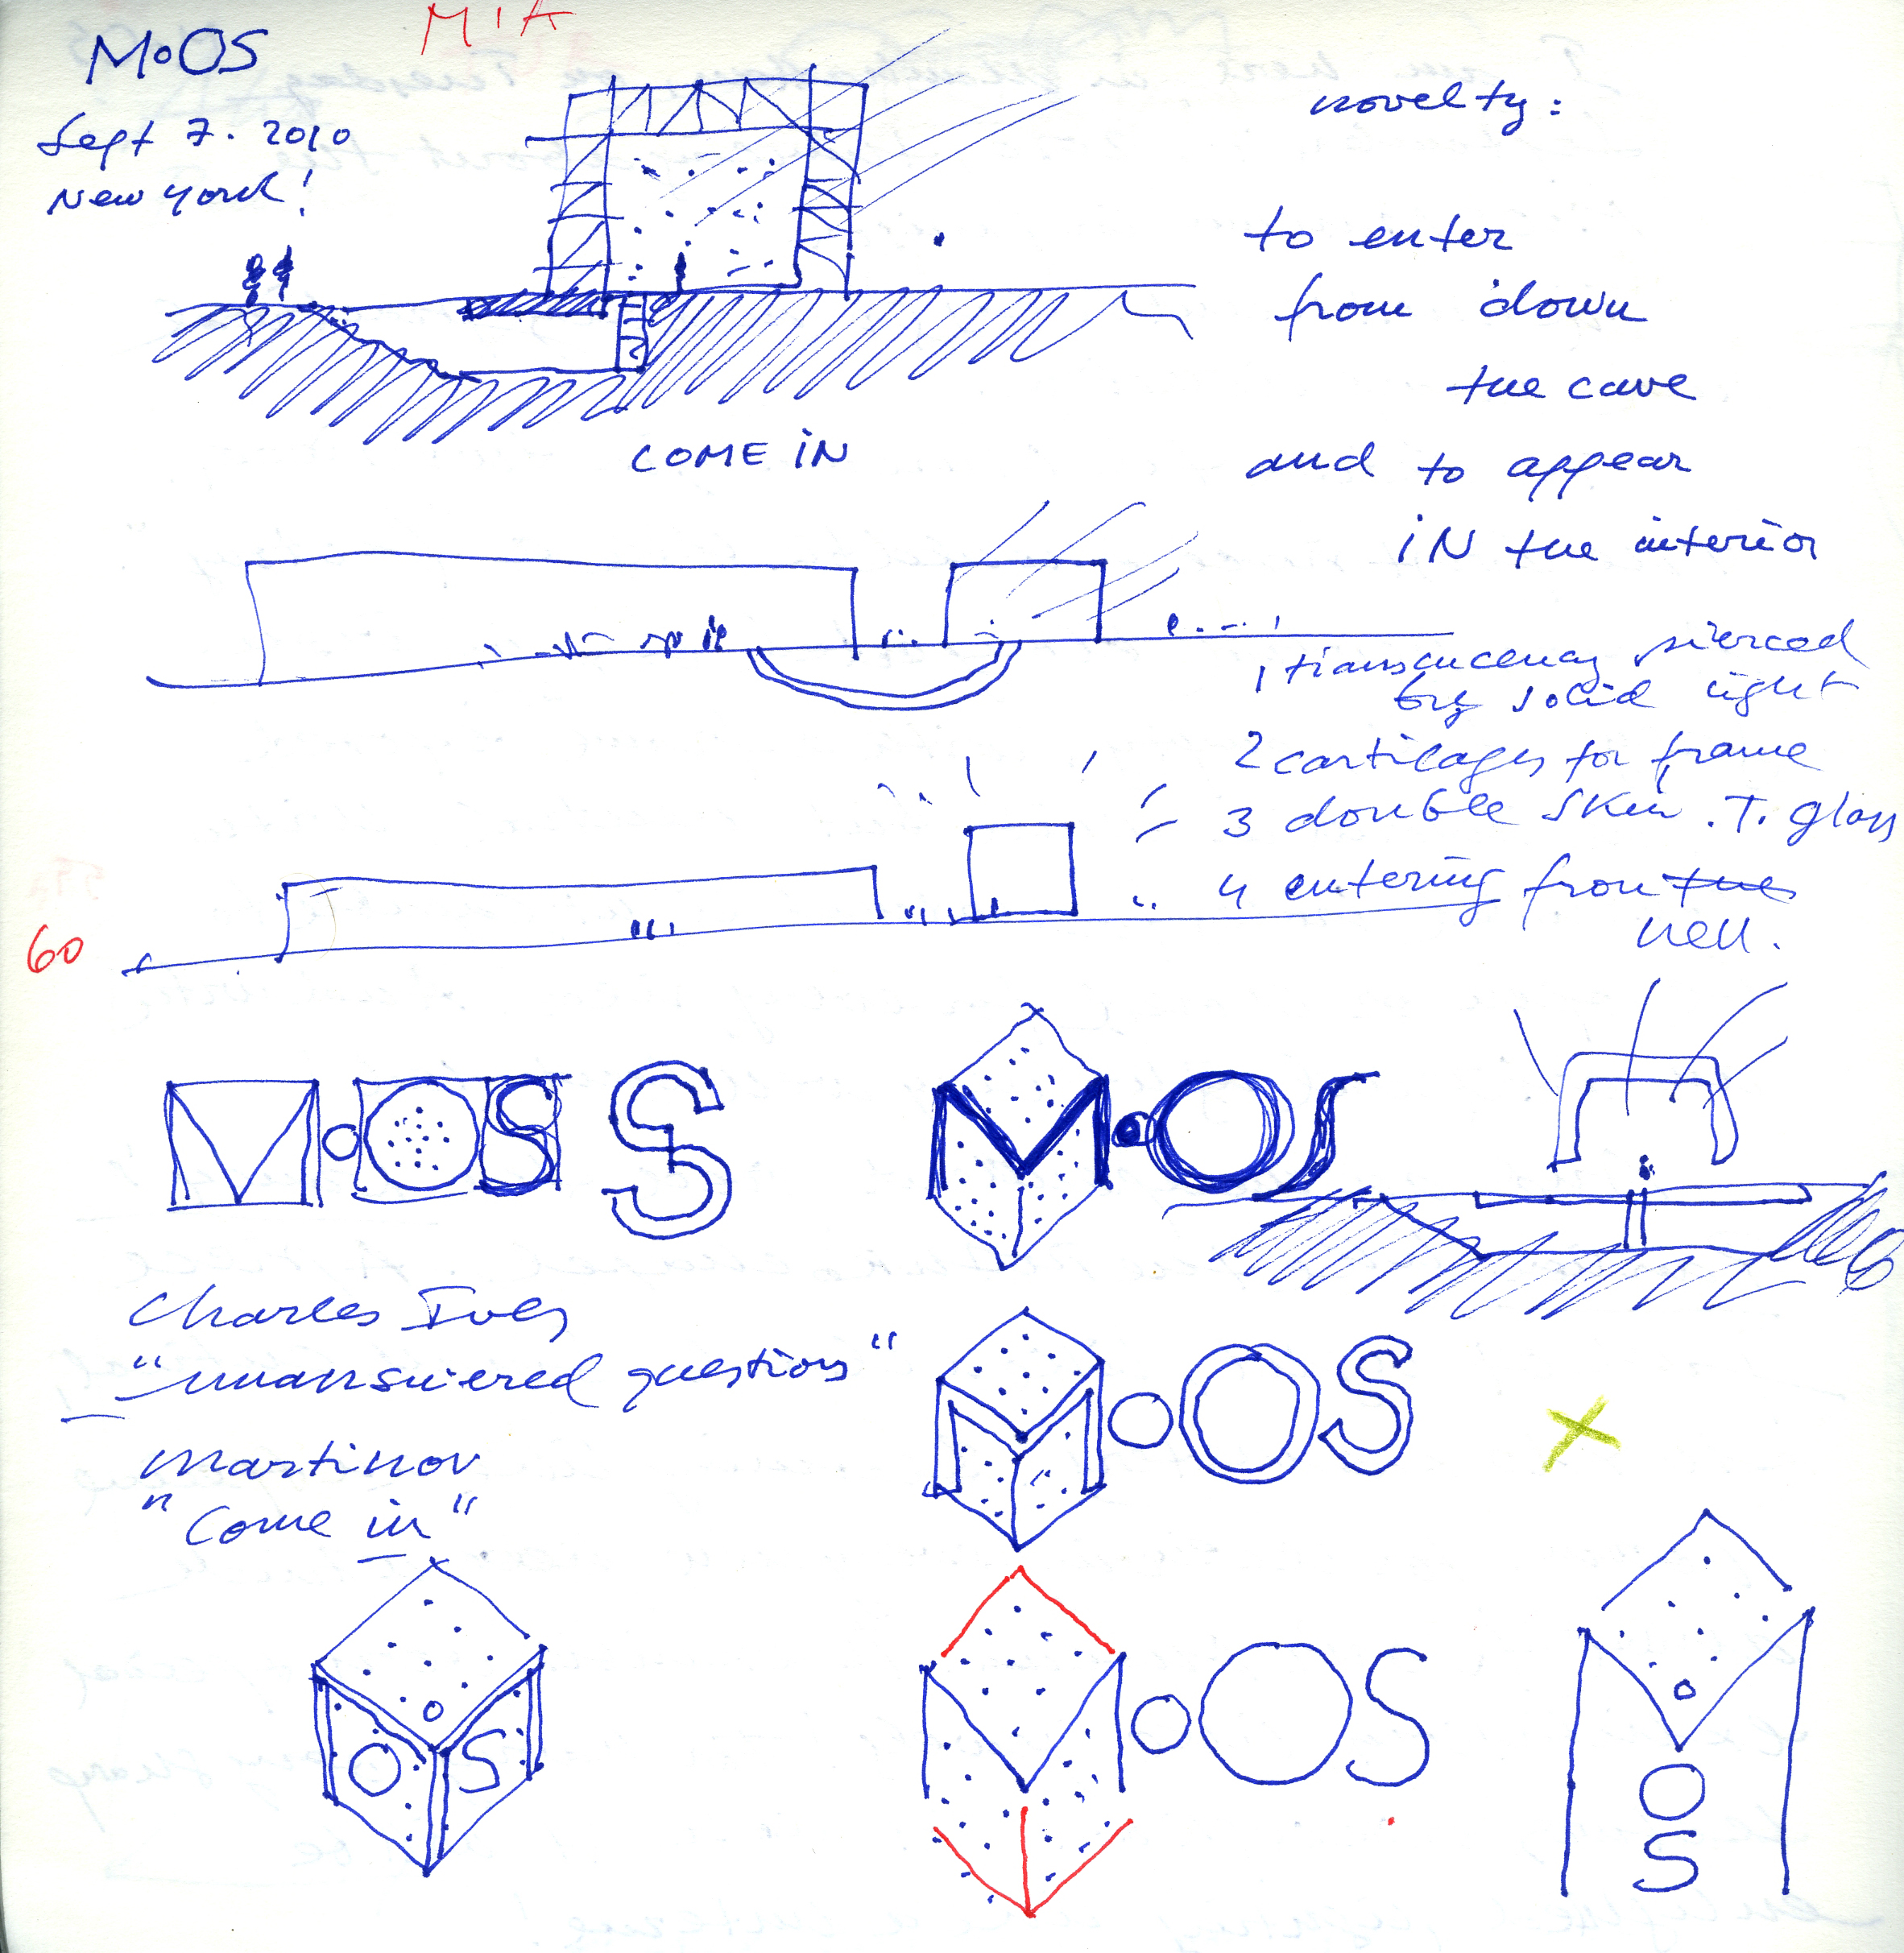 M·OS
MIA
Sept 7. 2010
New York!
novelty:
to enter
from down
the cave
and to appear
IN the interior
COME IN
1 translucency pierced
by solid light
2 cartilages for frame
3 double skin .T. glass
4 entering from the
hell.
60
M·OS S
M·OS
Charles Ives
"unanswered questions"
M·OS
Martinov
"Come in"
M·OS
M·OS
M·OS